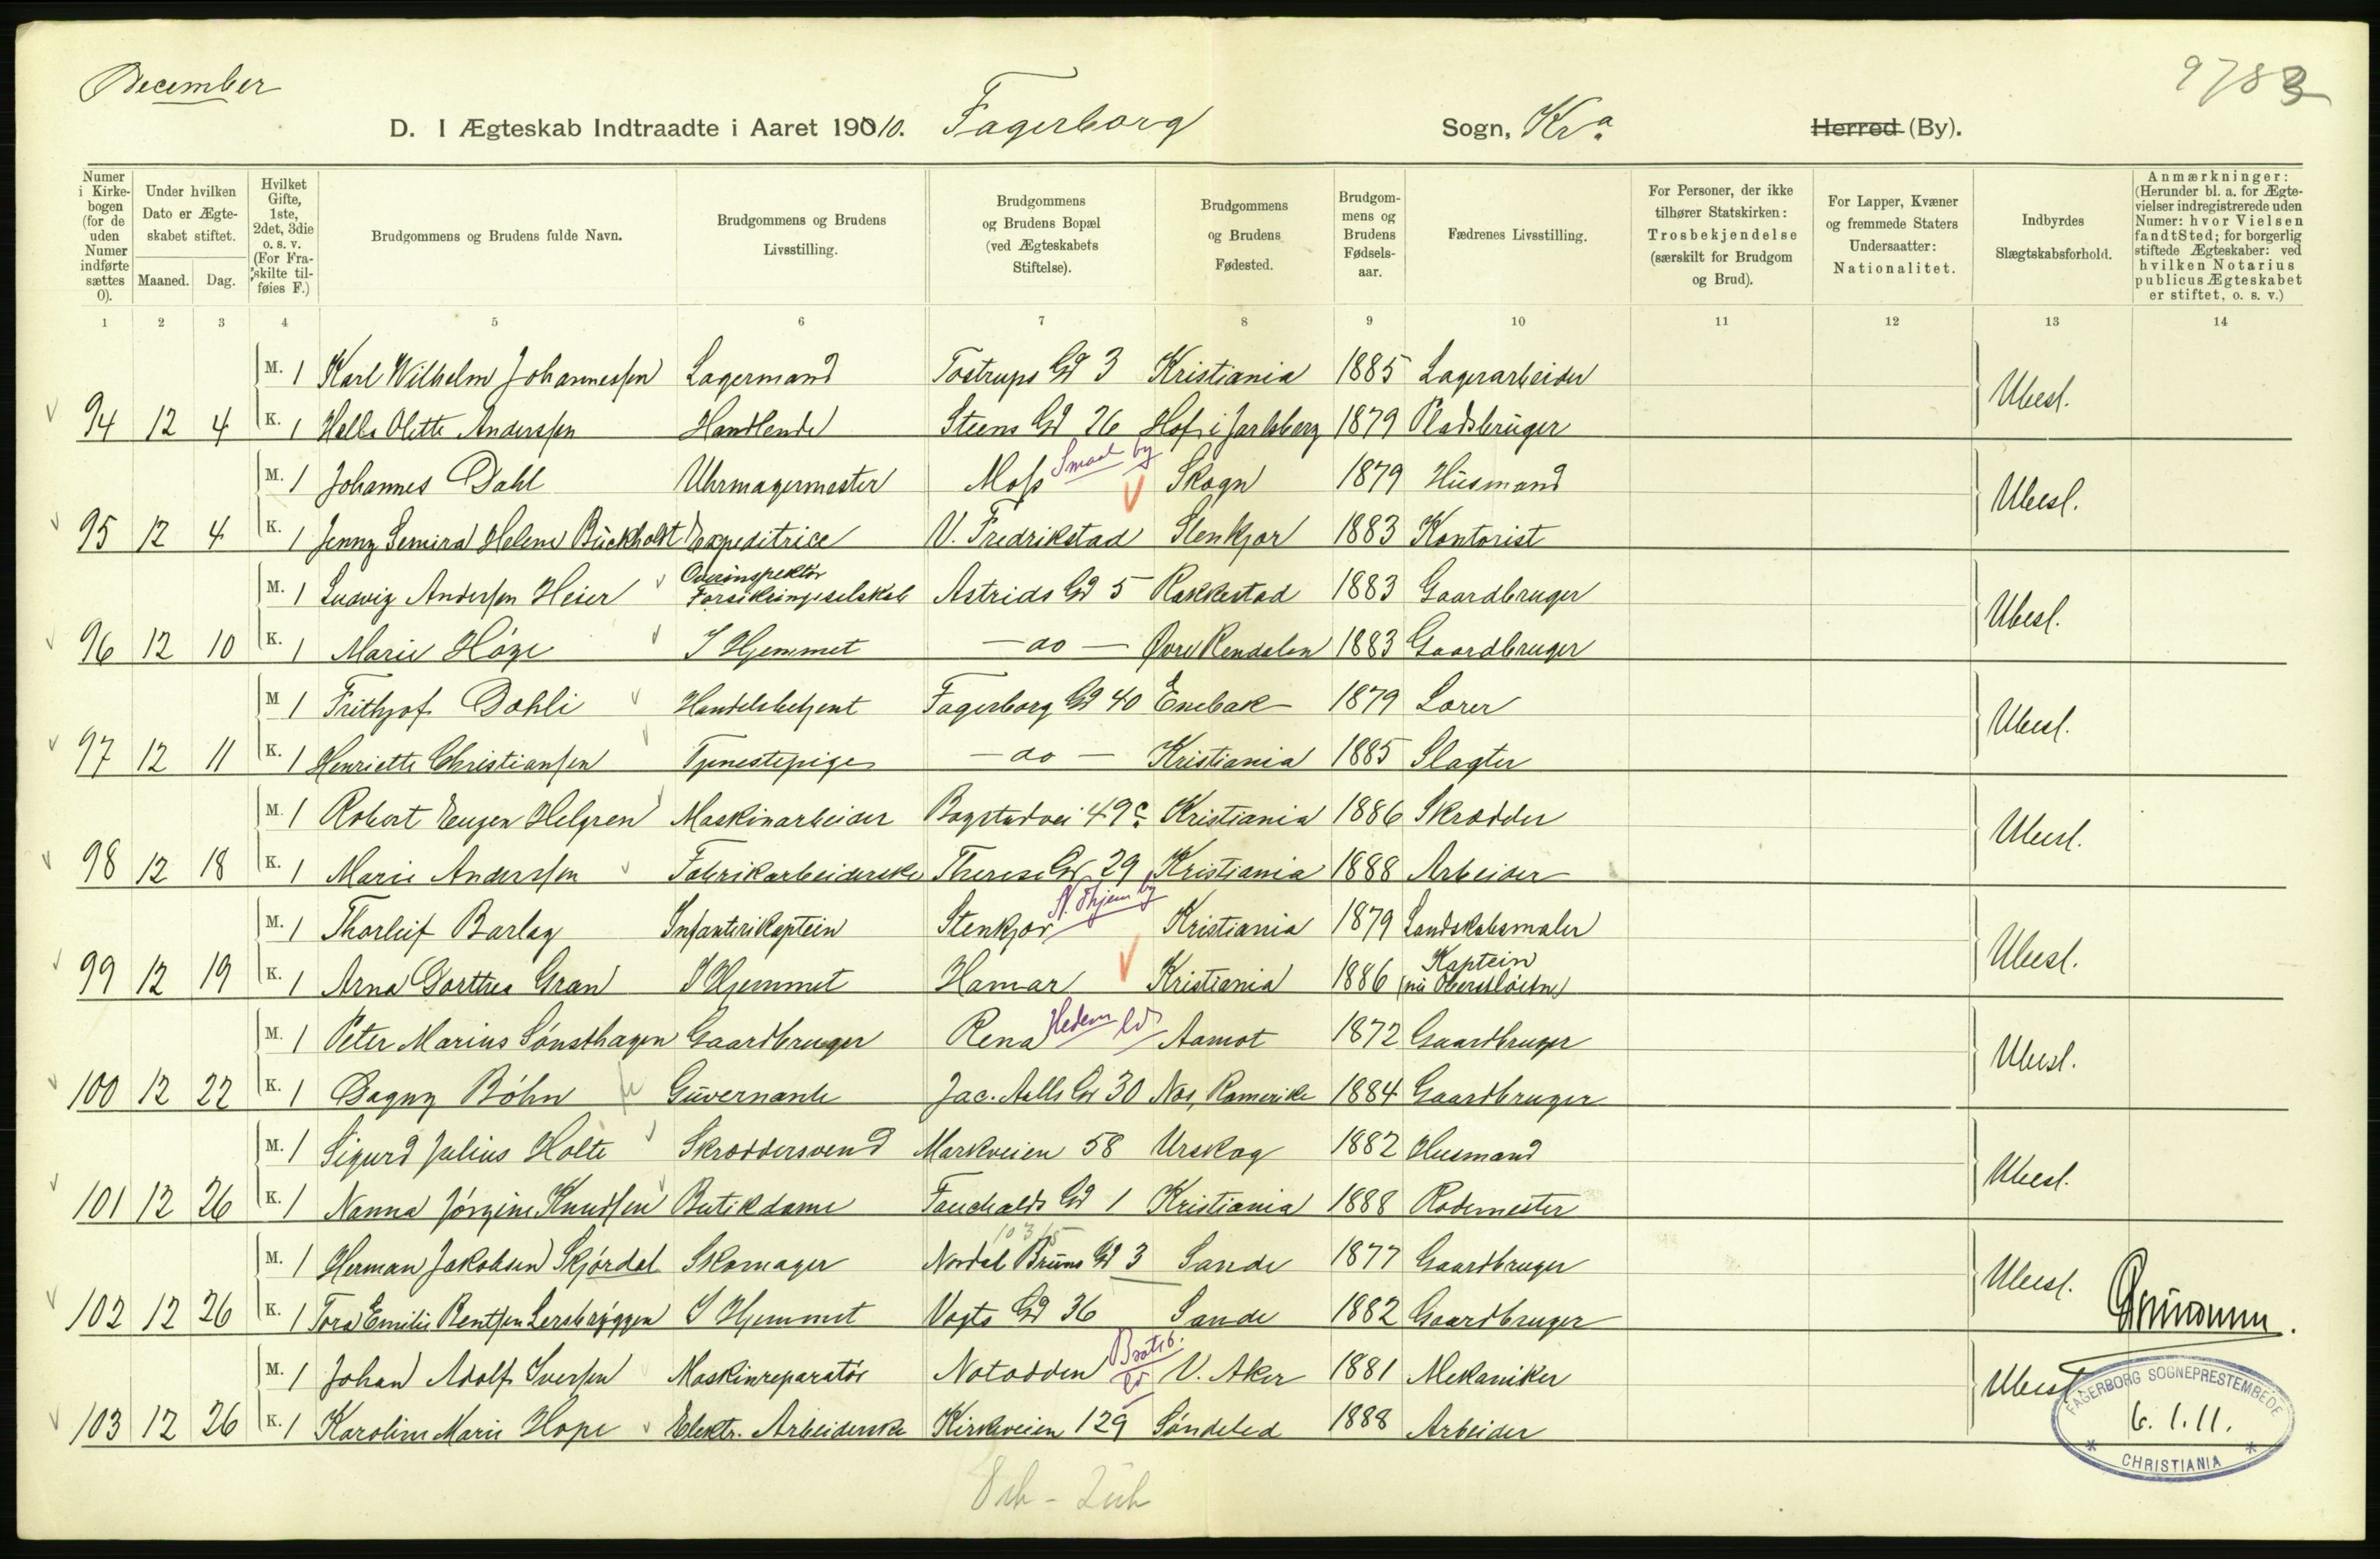 December
9783
D. I Ægteskab Indtraadte i Aaret 1910. Fagerborg Sogn, Kra. Herred (By).
Numer i Kirkebogen (for de uden Numer indførte sættes 0).
Under hvilken Dato er Ægteskabet stiftet.
Maaned. Dag.
Hvilket Gifte, 1ste, 2det, 3die o. s. v. (For Fraskilte tilføies F.)
Brudgommens og Brudens fulde Navn.
Brudgommens og Brudens Livsstilling.
Brudgommens og Brudens Bopæl (ved Ægteskabets Stiftelse).
Brudgommens og Brudens Fødested.
Brudgommens og Brudens Fødselsaar.
Fædrenes Livsstilling.
For Personer, der ikke tilhører Statskirken: Trosbekjendelse (særskilt for Brudgom og Brud).
For Lapper, Kvæner og fremmede Staters Undersaatter: Nationalitet.
Indbyrdes Slægtskabsforhold.
Anmærkninger: (Herunder bl. a. for Ægtevielser indregistrerede uden Numer: hvor Vielsen fandt Sted; for borgerlig stiftede Ægteskaber: ved hvilken Notarius publicus Ægteskabet er stiftet, o. s. v.)
1 2 3 4 5 6 7 8 9 10 11 12 13 14
M. 1 Karl Wilhelm Johannessen Lagermand Tostrups Gd 3 Kristiania 1885 Lagerarbeider Ubesl.
94 12 4 K. 1 Helle Olette Anderssen Handlende Steens Gd 26 Hof i Jarlsberg 1879 Pladsbruger
M. 1 Johannes Dahl Uhrmagermester Moss Smaal by Skogn 1879 Husmand Ubesl.
95 12 4 K. 1 Jenny Semira Helene Buckholdt Expeditrice V. Fredrikstad Stenkjær 1883 Kontorist
M. 1 Ludvig Anderssen Heier Overinspektör Forsikringsselskab Astrids Gd 5 Rakkestad 1883 Gaardbruger Ubesl.
96 12 10 K. 1 Marie Höge I Hjemmet — do — Øvre Rendalen 1883 Gaardbruger
M 1 Frithjof Dahli Handelsbetjent Fagerborg Gd 40 Enebak 1879 Lærer Ubesl.
97 12 11 K. 1 Henriette Christiansen Tjenestepige — do — Kristiania 1885 Slagter
M. 1 Robert Eugen Helgren Maskinarbeider Bogstadvei 49c. Kristiania 1886 Skrædder Ubesl.
98 12 18 K. 1 Marie Anderssen Fabrikarbeiderske Therese Gd 29 Kristiania 1888 Arbeider
M. 1 Thorleif Barlag Infanterikaptein Stenkjær N. Thjem by Kristiania 1879 Landskabsmaler Ubesl.
99 12 19 K. 1 Arna Dorthea Gran I Hjemmet Hamar Kristiania 1886 Kaptein (nu Oberstlöitn)
M. 1 Peter Marius Sönsthagen Gaardbruger Rena Hedem ld Aamot 1872 Gaardbruger Ubesl.
100 12 22 K. 1 Dagny Böhn Guvernante Jac. Aalls Gd 30 Nes, Romerike 1884 Gaardbruger
M. 1 Sigurd Julius Holte Skræddersvend Markveien 58 Urskog 1882 Husmand Ubesl.
101 12 26 K. 1 Nanna Jörgine Knudsen Butikdame Fauchalds Gd 1 Kristiania 1888 Rodemester
M. 1 Herman Jakobsen Skjördal Skomager Nordal Bruns Gd 3 Sande 1877 Gaardbruger Ubesl.
102 12 26 K. 1 Tora Emilie Bentsen Lersbryggen I Hjemmet Vogts Gd 36 Sande 1882 Gaardbruger
M. 1 Johan Adolf Iversen Maskinreparatör Notodden Bratsb. ld V. Aker 1881 Mekaniker Ubesl
103 12 26 K. 1 Karoline Marie Hope Elektr. Arbeiderske Kirkeveien 129 Söndeled 1888 Arbeider
FAGERBORG SOGNEPRESTEMBEDE
6. 1. 11.
* CHRISTIANIA *